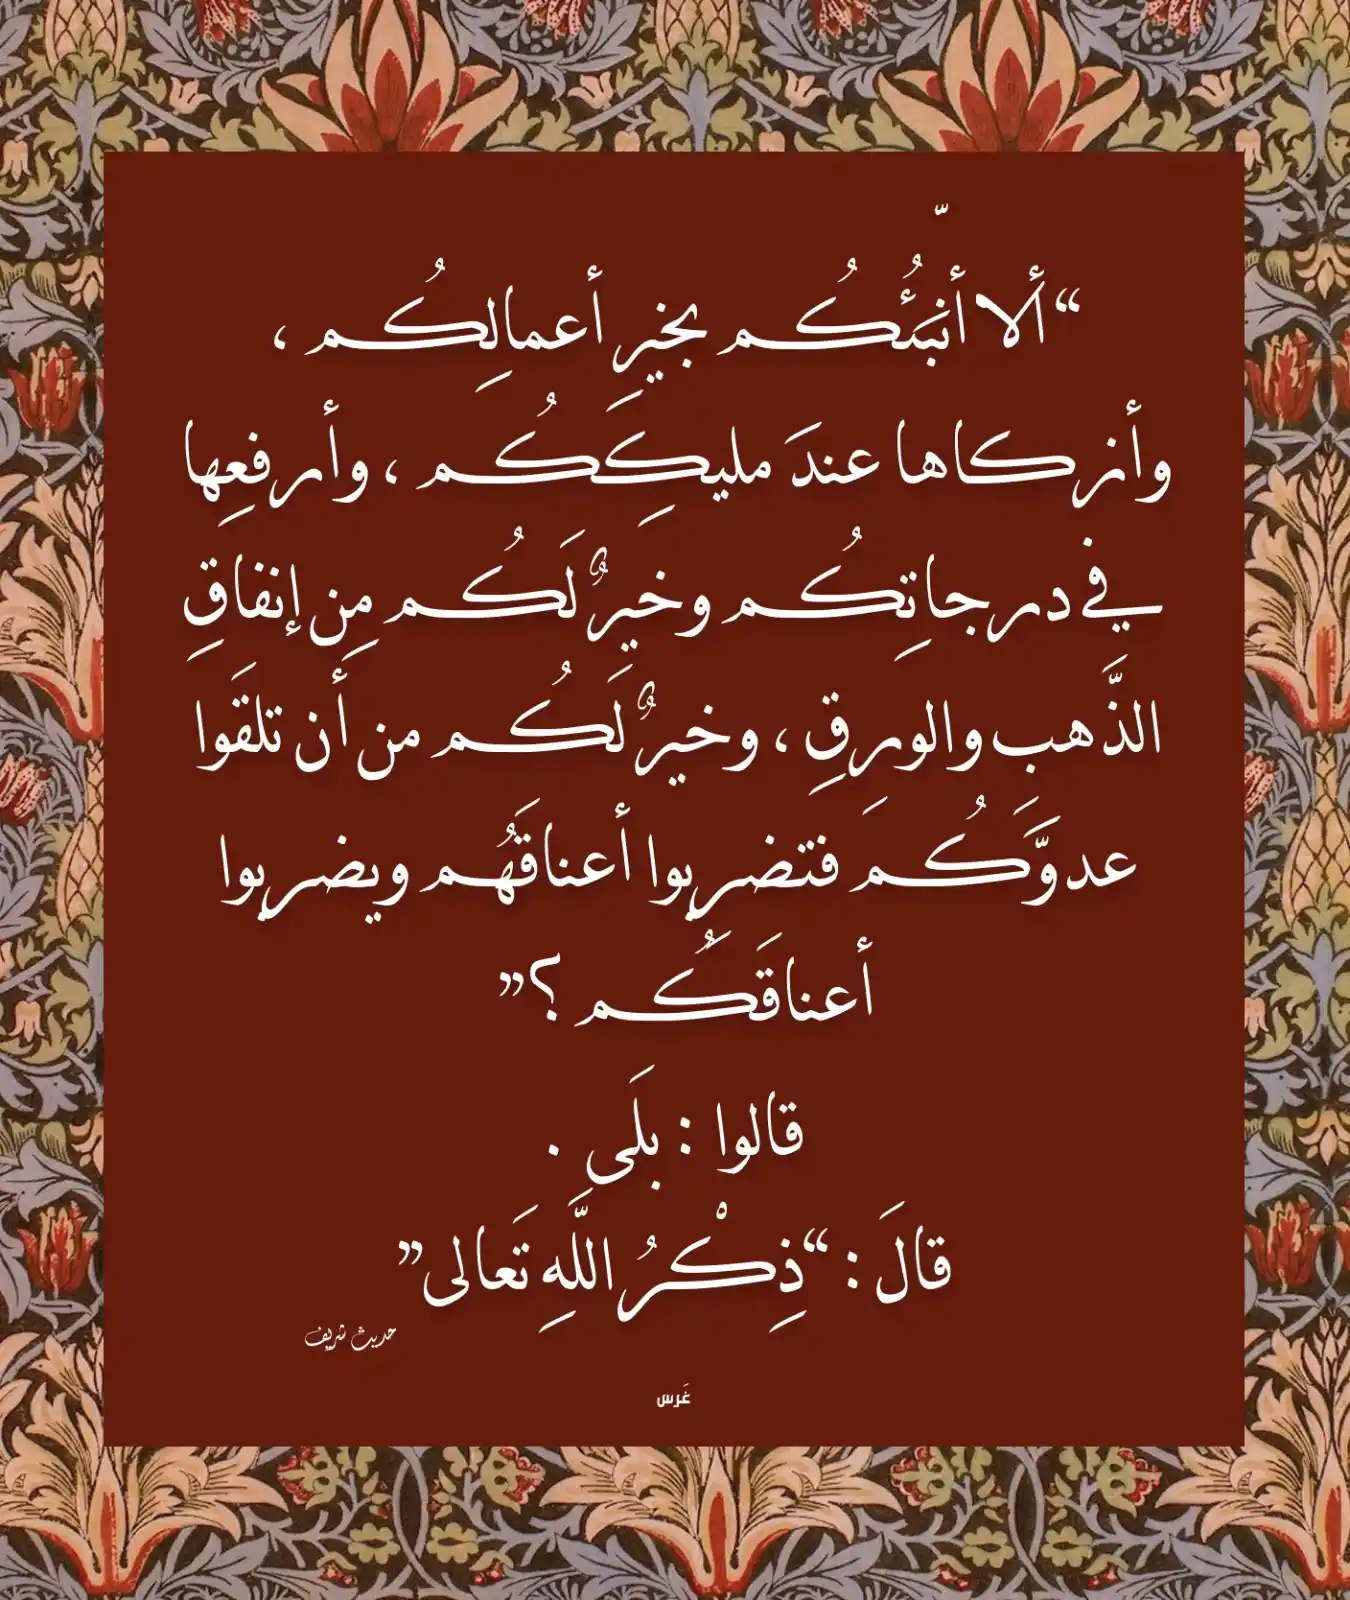 “ألا أنبِّئُكُم بخيرِ أعمالِكُم ،
وأزكاها عندَ مليكِكُم ، وأرفعِها
في درجاتِكُم وخيرٌ لَكُم مِن إنفاقِ
الذَّهبِ والورِقِ ، وخيرٌ لَكُم من أن تلقَوا
عدوَّكُم فتضرِبوا أعناقَهُم ويضربوا
أعناقَكُم ؟”
قالوا : بلَى .
قالَ : “ذِكْرُ اللَّهِ تَعالى”
حديث شريف
غَرس